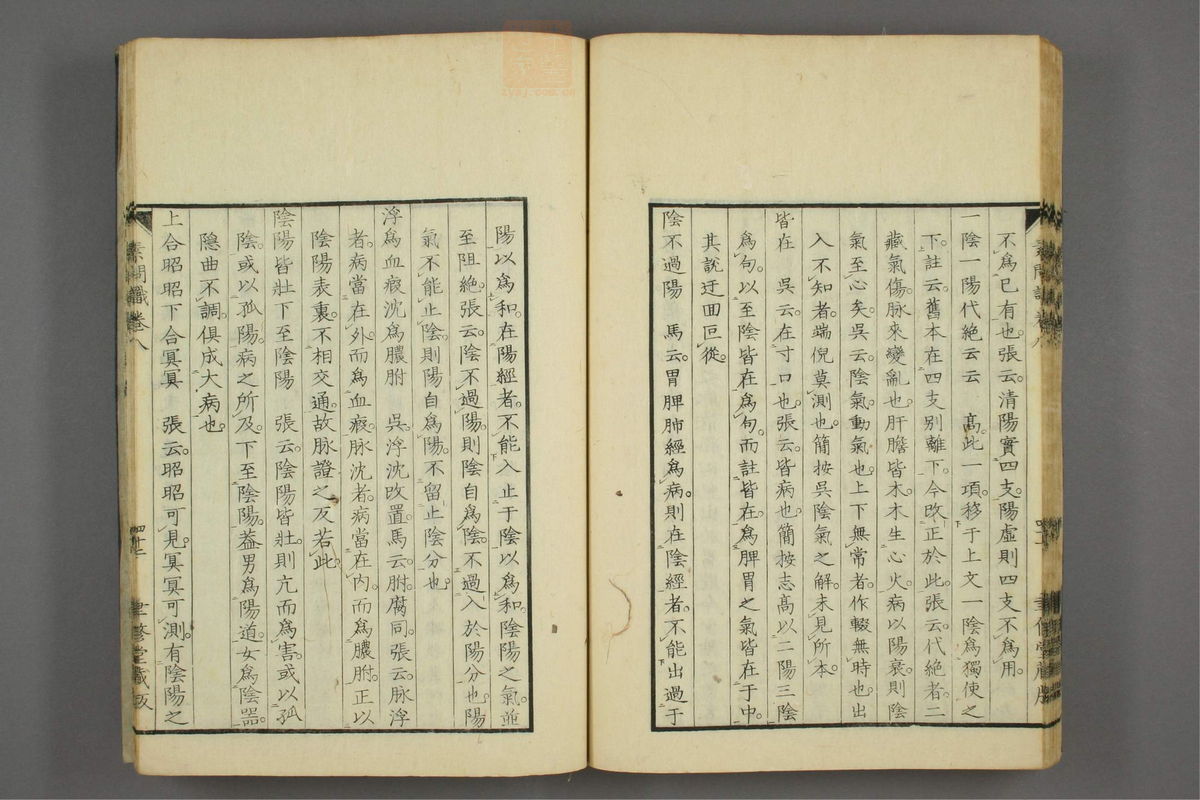 不爲已有也張云清陽實四支陽虛則四支不爲用
一陰一陽代絕云云　高此一項移于上文一陰爲獨使之
下註云舊本在四支別離下今改正於此張云代絕者二
藏氣傷脉來變亂也肝膽皆木木生心火病以陽衰則陰
氣至心矣吳云陰氣動氣也上下無常者作輟無時也出
入不知者端倪莫測也簡按吳陰氣之解未見所本
皆在　吳云在寸口也張云皆病也簡按志高以二陽三陰
爲句以至陰皆在爲句而註皆在爲脾胃之氣皆在于中
其說迂回叵從
陰不過陽　馬云胃脾肺經爲病則在陰經者不能出過于
陽以爲和在陽經者不能入止于陰以爲和陰陽之氣並
至阻絕張云陰不過陽則陰自爲陰不過入於陽分也陽
氣不能止陰則陽自爲陽不留止陰分也
浮爲血瘕沈爲膿胕　吳浮沈改置馬云胕腐同張云脉浮
者病當在外而爲血瘕脉沈者病當在內而爲膿胕正以
陰陽表裏不相交通故脉證之反若此
陰陽皆壯下至陰陽　張云陰陽皆壯則亢而爲害或以孤
陰或以孤陽病之所及下至陰陽蓋男爲陽道女爲陰器
隱曲不調俱成大病也
上合昭昭下合冥冥　張云昭昭可見冥冥可測有陰陽之
素問識卷八
四十二
聿修堂藏版